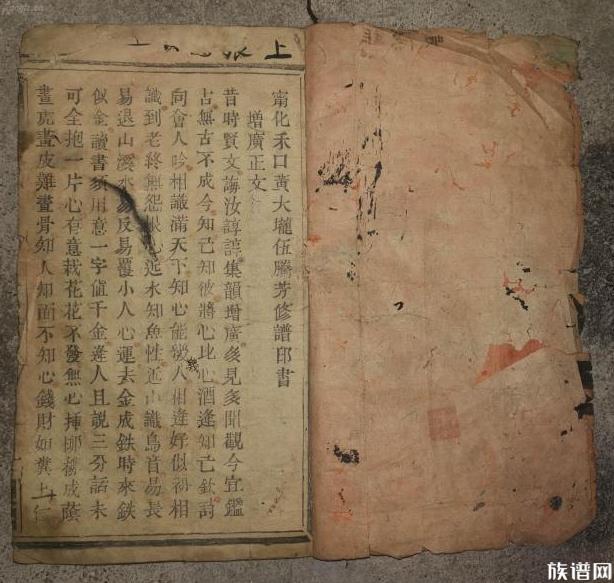 甯化禾口黃大壠伍騰芳修譜印書
增廣正文
昔時賢文誨汝諄諄集韻增廣多見多聞觀今宜鑑
古無古不成今知己知彼將心比心酒逢知己飲詩
向會人吟相識滿天下知心能幾人相逢好似初相
識到老終無怨恨心近水知魚性近山識鳥音易長
易退山溪水易反易覆小人心運去金成鉄時來鉄
似金讀書須用意一字值千金逢人且說三分話未
可全抛一片心有意栽花花不發無心揷栁栁成蔭
畫虎畫皮難畫骨知人知面不知心錢財如糞土仁
族谱网